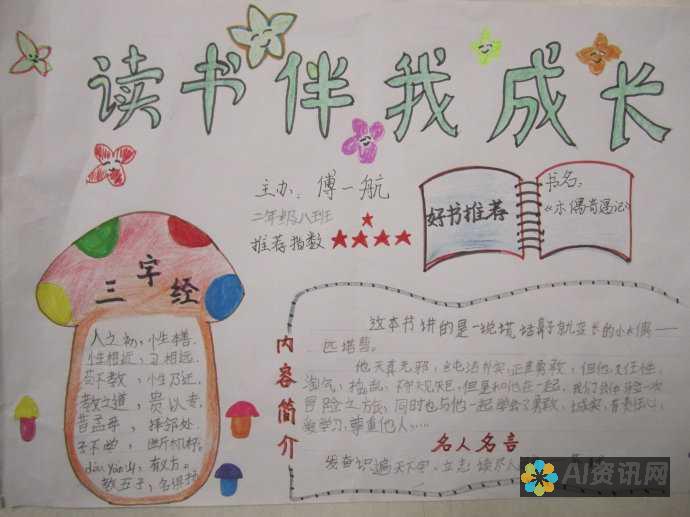 读书伴我成长
主办：傅一航
二年级八班
推荐指数
好书推荐
书名：
《木偶奇遇记》
三字经
人之初，性本善.
性相近，习相远.
苟不教，性乃迁.
教之道，贵以专.
昔孟母，择邻处.
子不学，断机杼.
dòu yān山，有义方.
教五子，名俱扬
内容简介
这本书讲的是一说谎，鼻子就变长的小木偶——
匹诺曹。
他天真无邪，
正直勇敢，但他又任性，
淘气，捣乱，
和他在一起，
冒险之旅，同时也与他一起学会了勇敢，诚实，有责任心，
爱学习，尊重他人……
名人名言
发奋识遍天下字，立志读尽人
AI资讯网